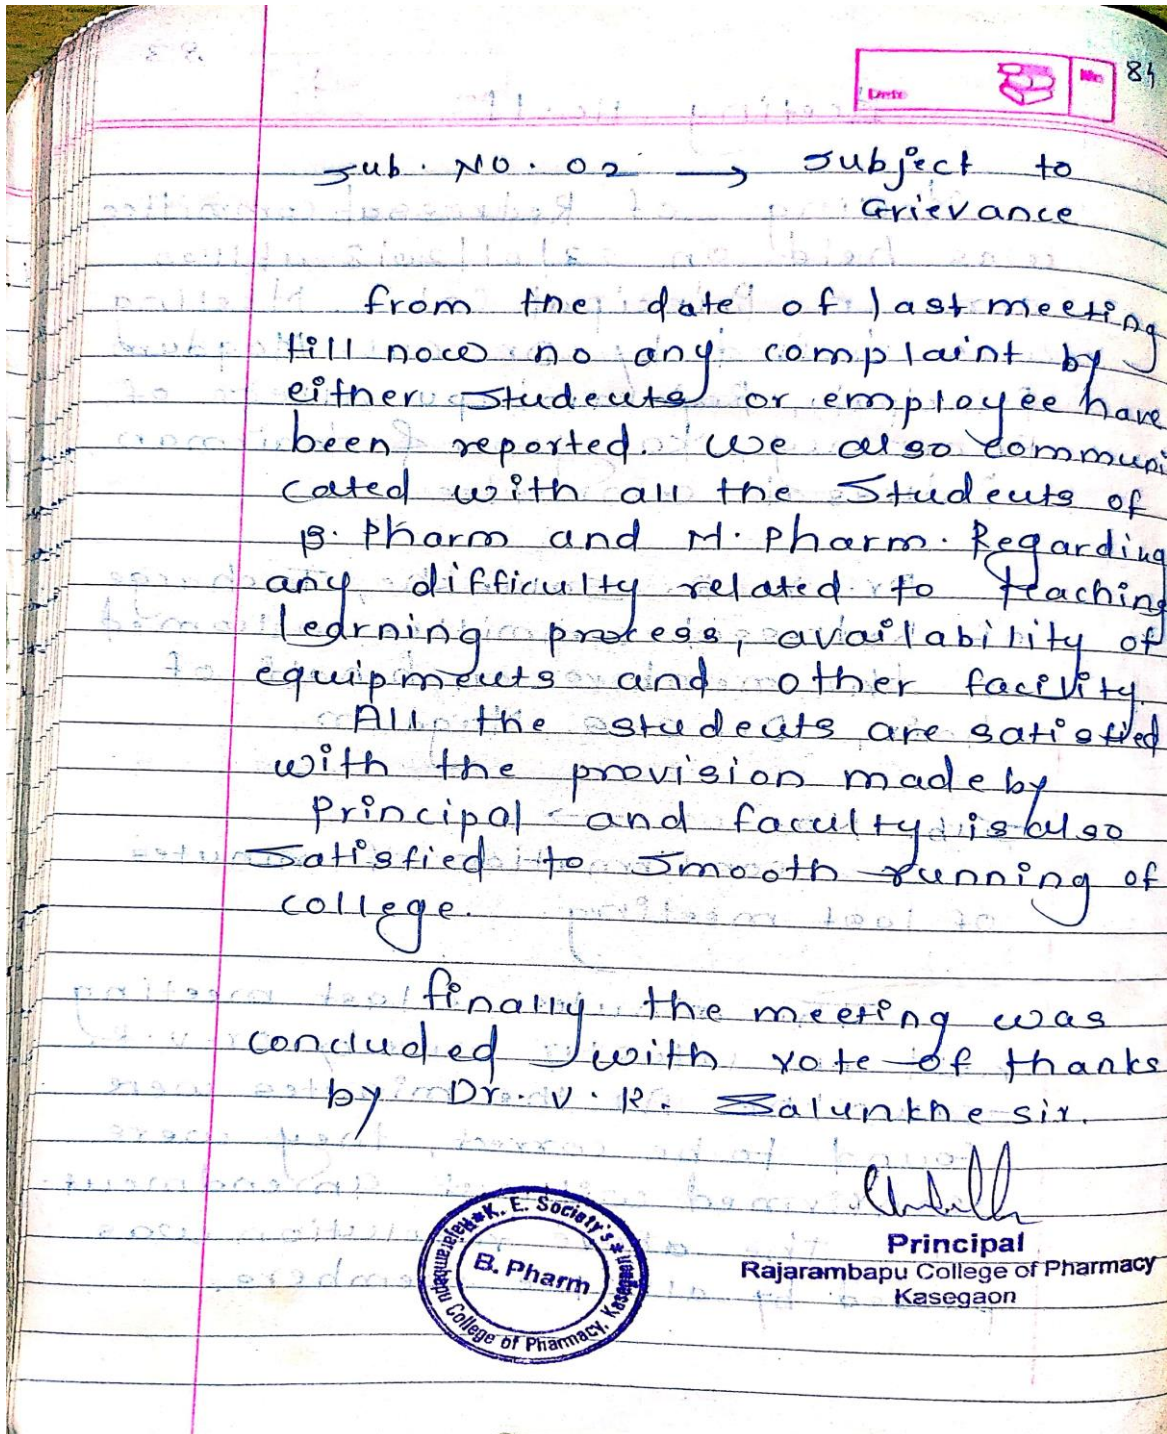 Date
No
84
Sub. No. 02 → Subject to
Grievance
from the date of last meeting
till now no any complaint by
either students or employee have
been reported. We also communi
cated with all the Students of
B. Pharm and M. Pharm. Regarding
any difficulty related to teaching
learning process, availability of
equipments and other facility.
All the students are satisfied
with the provision made by
Principal and faculty is also
Satisfied to Smooth running of
college.
finally the meeting was
concluded with vote of thanks
by Dr. V. R. Salunkhe sir.
K. E. Society's
Rajarambapu College of Pharmacy, Kasegaon
B. Pharm
Principal
Rajarambapu College of Pharmacy
Kasegaon